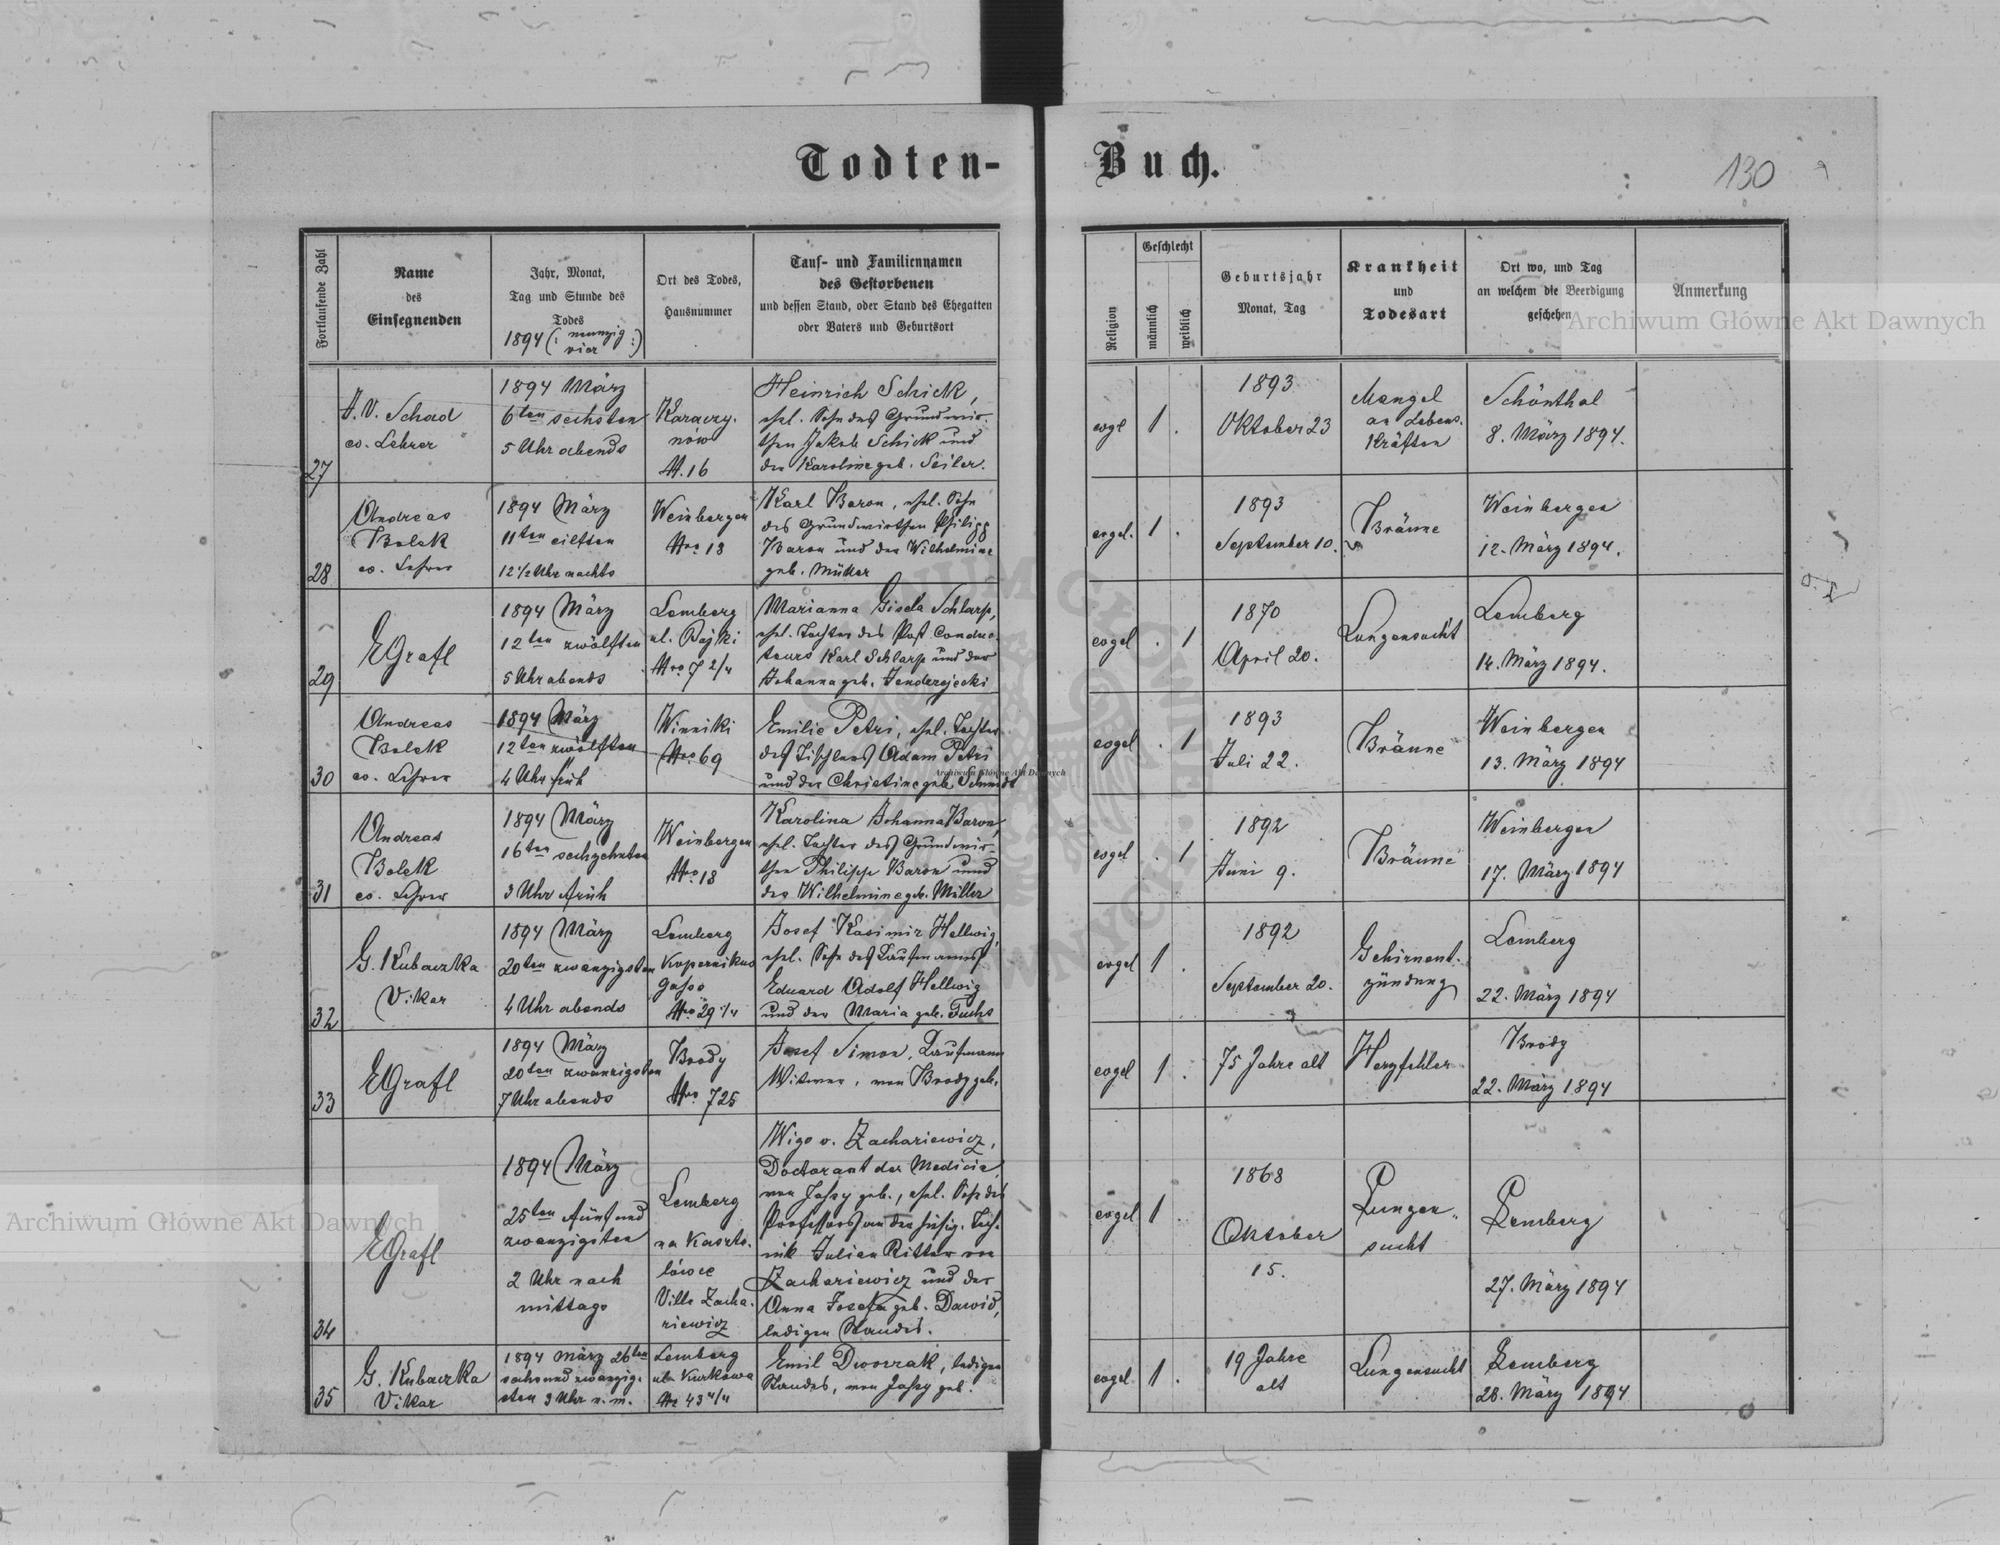 Todten-Buch.
130
Fortlaufende Zahl
Name
des
Einsegnenden
Jahr, Monat,
Tag und Stunde des
Todes
1894 (: neunzig
vier :)
Ort des Todes,
Hausnummer
Tauf- und Familiennamen
des Gestorbenen
und dessen Stand, oder Stand des Ehegatten
oder Vaters und Geburtsort
Religion
Geschlecht
männlich
weiblich
Geburtsjahr
Monat, Tag
Krankheit
und
Todesart
Ort wo, und Tag
an welchem die Beerdigung
geschehen
Anmerkung
27
J. V. Schad
ev. Lehrer
1894 März
6ten sechsten
5 Uhr abends
Karaczy.
nów
N. 16
Heinrich Schick,
ehel. Sohn des Grundwir-
then Jakob Schick und
der Karoline geb. Seiler.
evgl
1 .
1893
Oktober 23
Mangel
an Lebens.
Kräften
Schönthal
8. März 1894.
28
Andreas
Bolek
ev. Lehrer
1894 März
11ten eilften
12 1/2 Uhr nachts
Weinbergen
Nro 18
Karl Baron, ehel. Sohn
des Grundwirthen Philipp
Baron und der Wilhelmine
geb. Müller
evgel.
1 .
1893
September 10.
Bräune
Weinbergen
12. März 1894.
29
EGrafl
1894 März
12ten zwölften
5 Uhr abends
Lemberg
ul. Bajki
Nro 7 2/4
Marianna Gisela Schlarp,
ehel. Tochter des Post Conduc.
teurs Karl Schlarp und der
Johanna geb. Jendrzejecki
evgel
. 1
1870
April 20.
Lungensucht
Lemberg
14. März 1894.
30
Andreas
Bolek
ev. Lehrer
1894 März
12ten zwölften
4 Uhr früh
Winniki
Nro 69
Emilie Petri, ehel. Tochter
des Tischlers Adam Petri
und der Christine geb. Schmidt
evgel
. 1
1893
Juli 22.
Bräune
Weinbergen
13. März 1894
31
Andreas
Bolek
ev. Lehrer
1894 März
16ten sechzehnten
3 Uhr früh
Weinbergen
Nro 18
Karolina Johanna Baron,
ehel. Tochter des Grundwir-
then Philipp Baron und
der Wilhelmine geb. Müller
evgel
. 1
1892
Juni 9.
Bräune
Weinbergen
17. März 1894
32
G. Kubaczka
Vikar
1894 März
20ten zwanzigsten
4 Uhr abends
Lemberg
Kopernikus
gasse
Nro 29 1/4
Josef Kasimir Hellwig,
ehel. Sohn des Kaufmannes
Eduard Adolf Hellwig
und der Maria geb. Fuchs
evgel
1 .
1892
September 20.
Gehirnent.
zündung
Lemberg
22. März 1894
33
EGrafl
1894 März
20ten zwanzigsten
7 Uhr abends
Brody
Nro 725
Josef Simon, Kaufmann
Witwer, von Brody geb.
evgel
1 .
75 Jahre alt
Herzfehler
Brody
22. März 1894
34
EGrafl
1894 März
25ten fünf und
zwanzigsten
2 Uhr nach
mittags
Lemberg
na Kaszte.
lówce
Villa Zacha.
riewicz
Wigo v. Zachariewicz,
Doctorant der Medicin,
von Jassy geb., ehel. Sohn des
Professors an der hiesig. Tech.
nik Julian Ritter von
Zachariewicz und der
Anna Josefa geb. Dawid,
ledigen Standes.
evgel
1 .
1868
Oktober
15.
Lungen„
sucht
Lemberg
27. März 1894
35
G. Kubaczka
Vikar
1894 März 26ten
sechsundzwanzig.
sten 3 Uhr n. m.
Lemberg
ulr Kurkowa
Nr 43 4/4
Emil Dworzak, ledigen
Standes, von Jassy geb.
evgel
1 .
19 Jahre
alt
Lungensucht
Lemberg
28. März 1894
Archiwum Główne Akt Dawnych
Archiwum Główne Akt Dawnych
Archiwum Główne Akt Dawnych